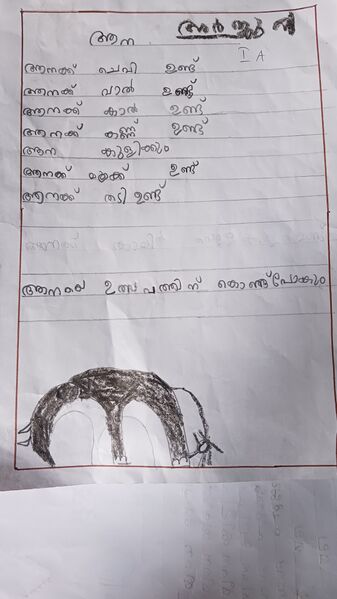 ആന. അർജ്ജുൻ
I A
ആനക്ക് ചെവി ഉണ്ട്
ആനക്ക് വാൽ ഉണ്ട്
ആനക്ക് കാൽ ഉണ്ട്
ആനക്ക് കണ്ണ് ഉണ്ട്
ആന കുളിക്കും
ആനക്ക് ഉണ്ട്
ആനക്ക് തടി ഉണ്ട്
ആനയെ ഉത്സപത്തിന് കൊണ്ടുപോകും